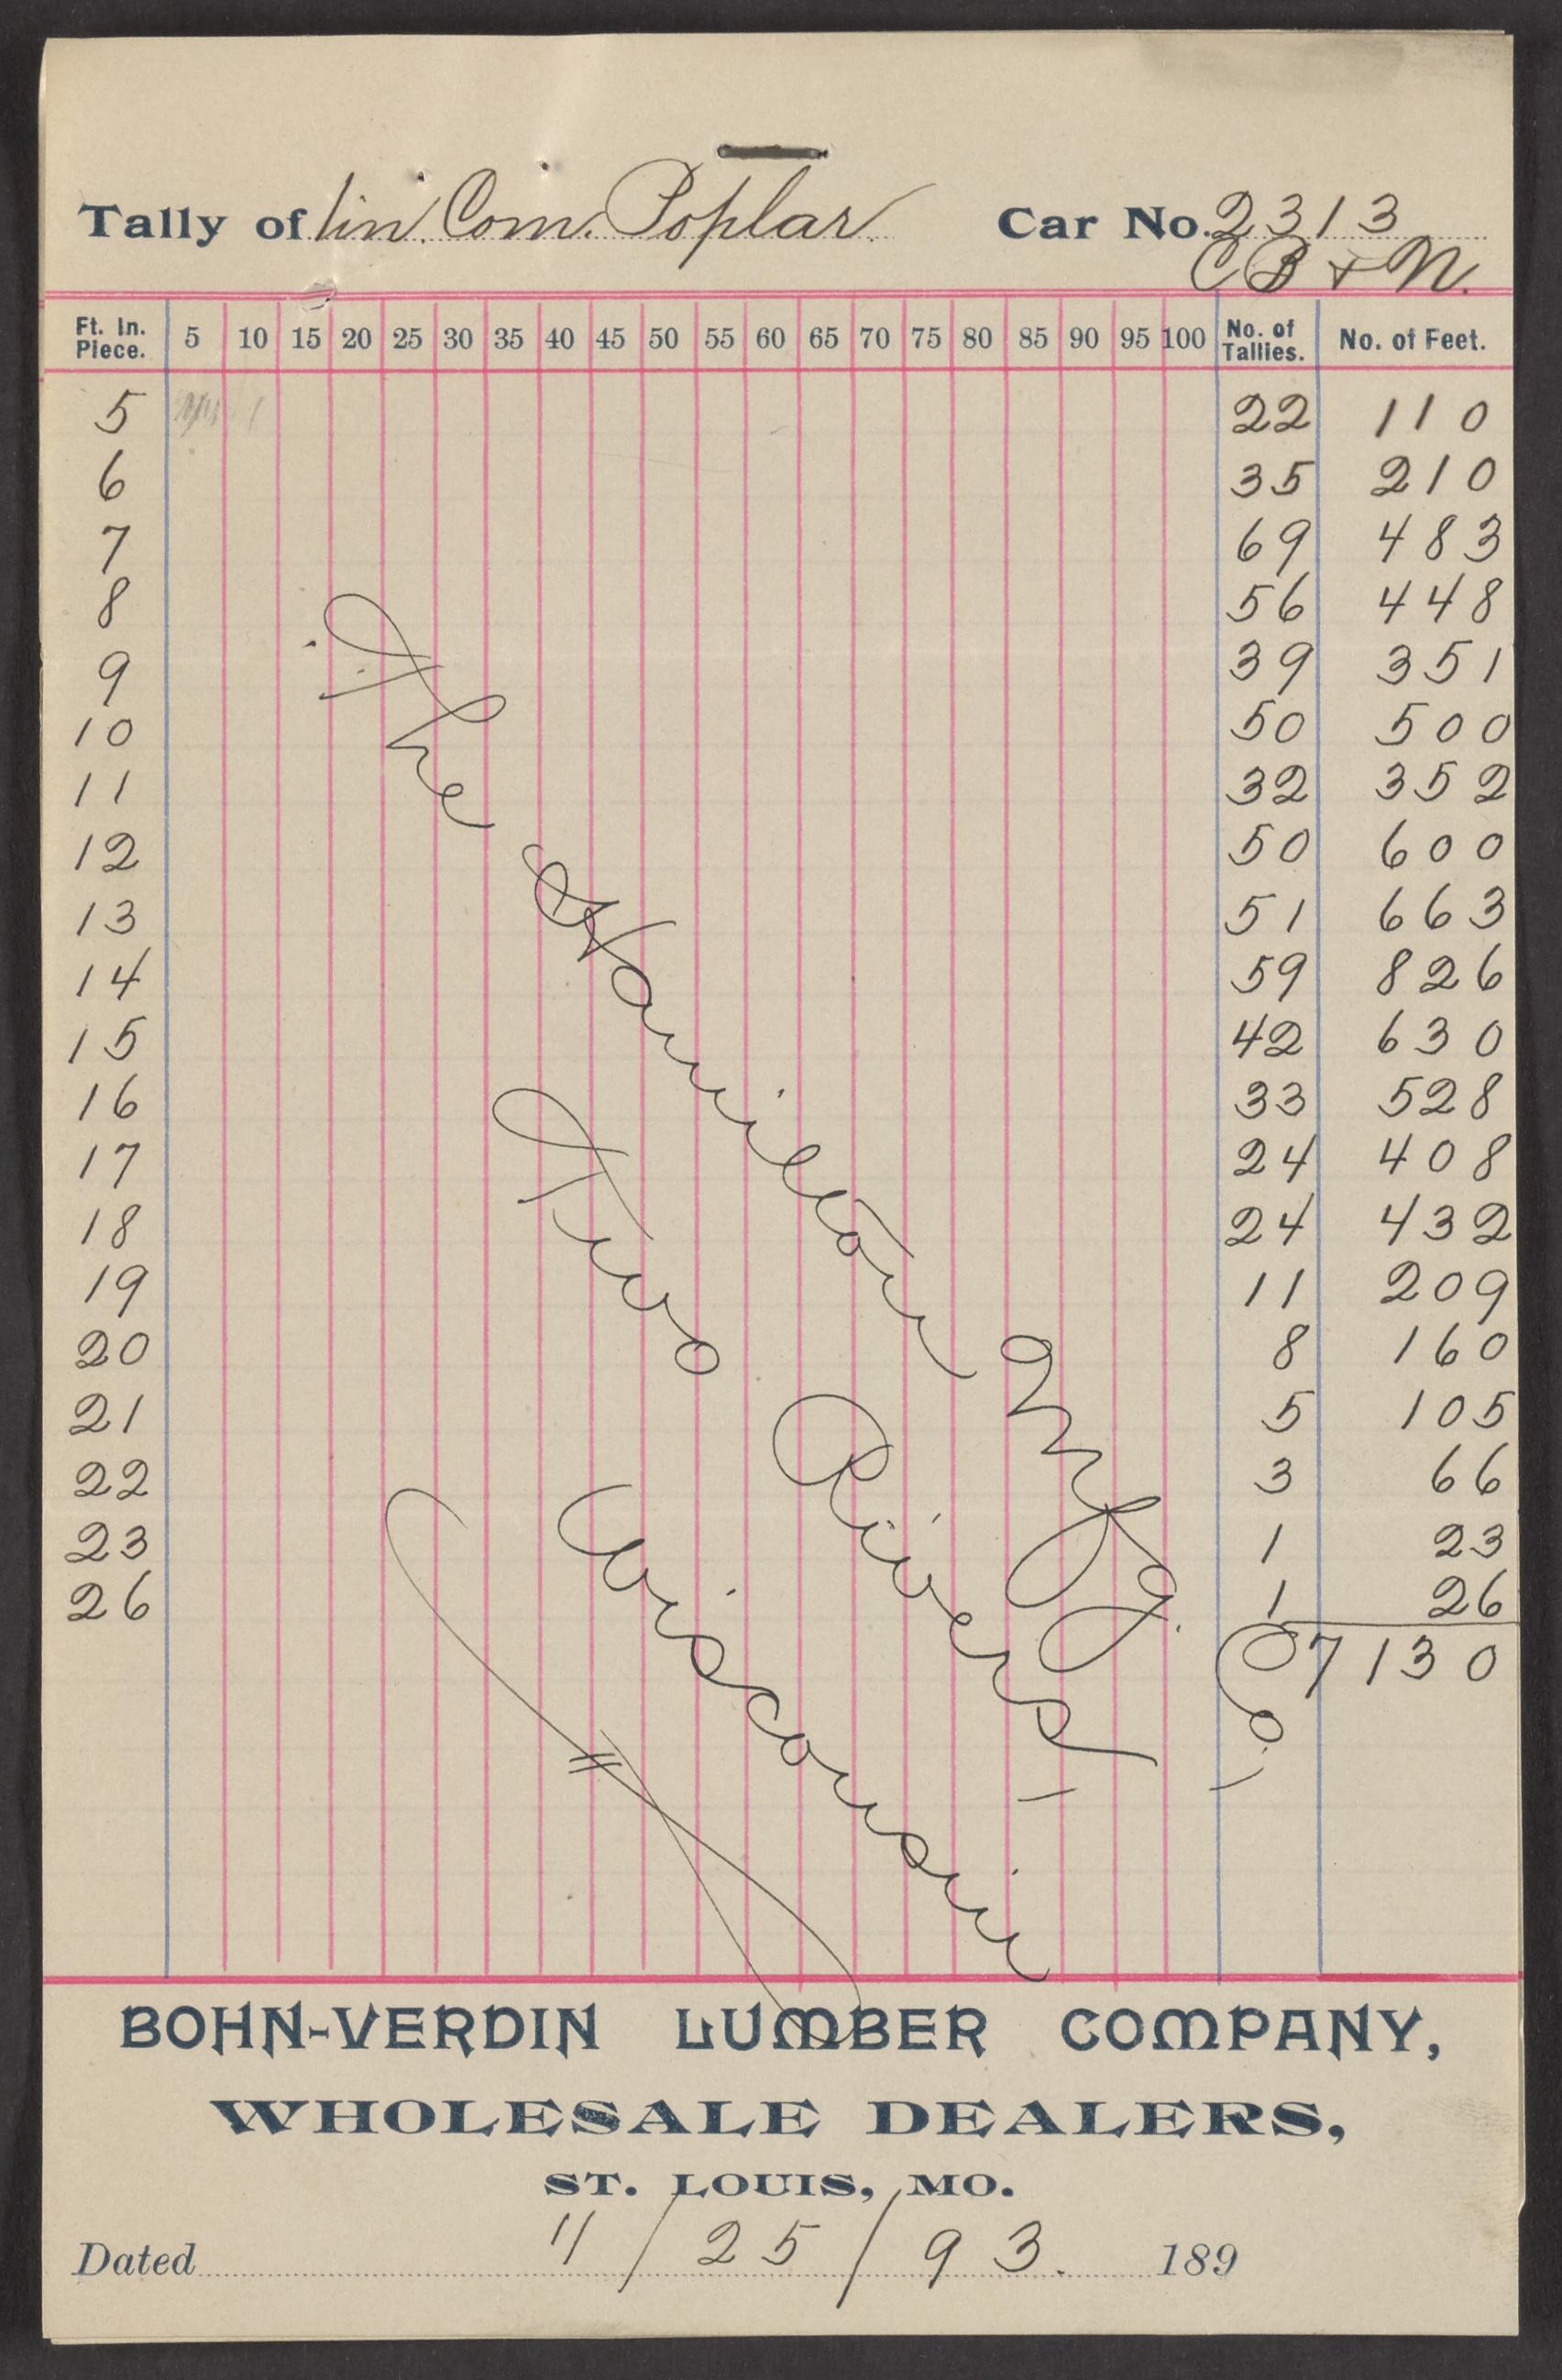 Tally of 1in. Com. Poplar. Car No. 2313
C B & N.
Ft. In. Piece. 5 10 15 20 25 30 35 40 45 50 55 60 65 70 75 80 85 90 95 100 No. of Tallies. No. of Feet.
5 22 110
6 35 210
7 69 483
8 56 448
9 39 351
10 50 500
11 32 352
12 50 600
13 51 663
14 59 826
15 42 630
16 33 528
17 24 408
18 24 432
19 11 209
20 8 160
21 5 105
22 3 66
23 1 23
26 1 26
7130
The Hamilton Mfg. Co.,
Two Rivers,
Wisconsin
BOHN-VERDIN LUMBER COMPANY,
WHOLESALE DEALERS,
ST. LOUIS, MO.
Dated 11/25/93. 189